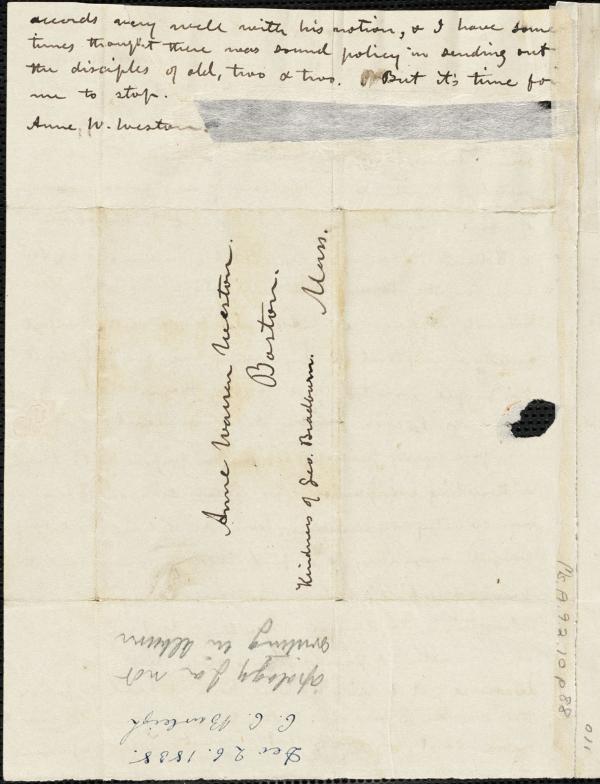 accords very well with his notion, & I have some
times thought there was sound policy in sending out
the disciples of old, two & two. But it's time for
me to stop.
Anne W. Weston.
Anne Warren Weston.
Boston.
Mass.
Kindness of Geo. Bradburn.
Dec. 26. 1838.
C. C. Burleigh
apology for not
writing in album
Ms. A. 9. 2. 10 p 88